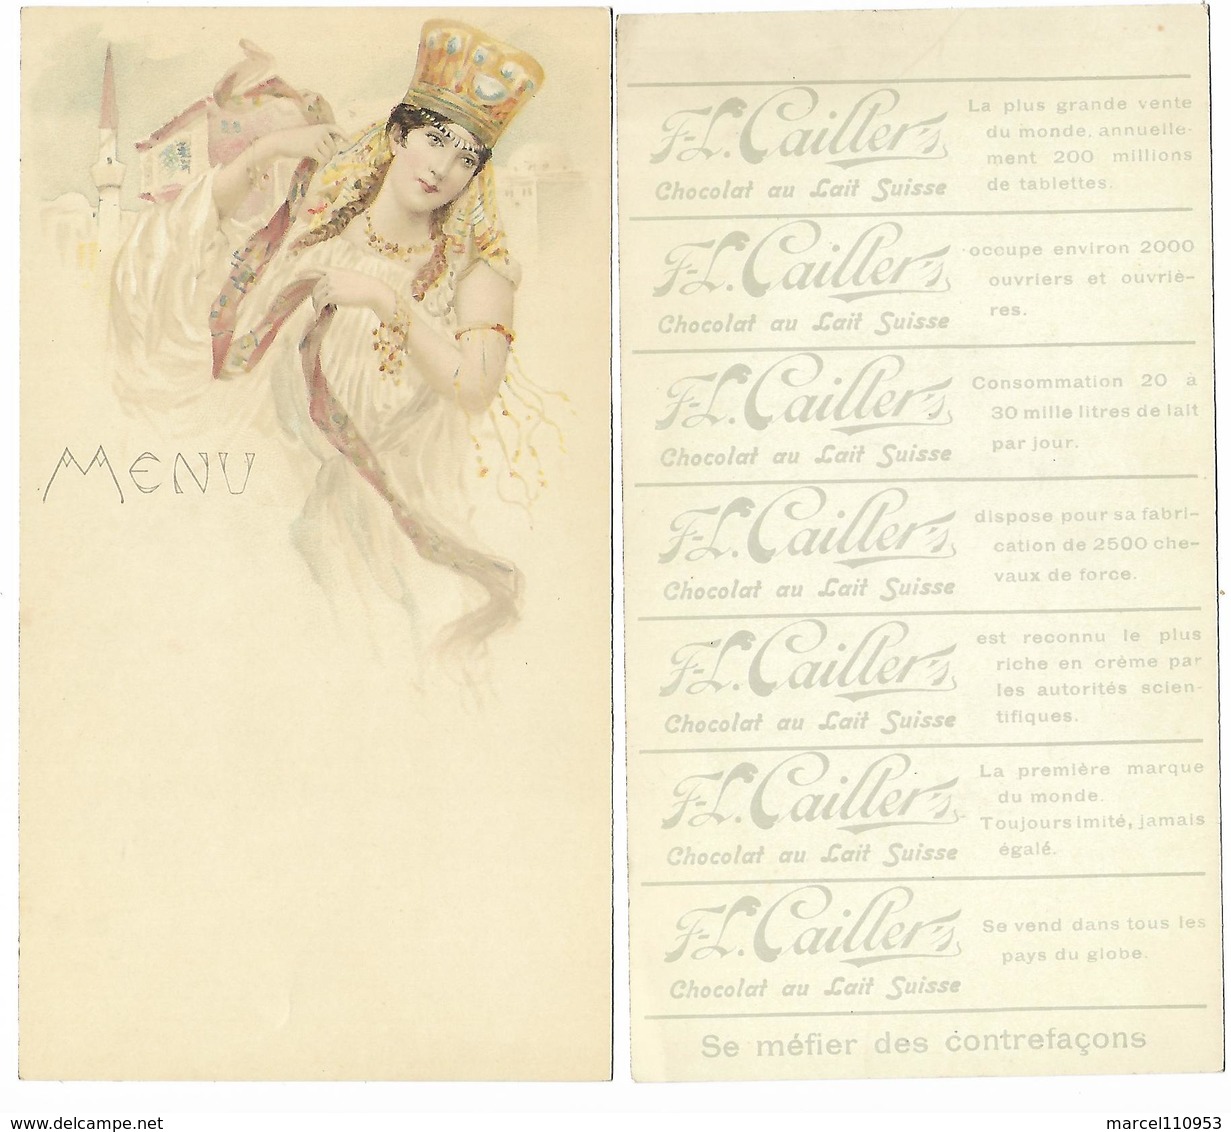 MENU
F-L. Cailler's
Chocolat au Lait Suisse
La plus grande vente
du monde, annuelle-
ment 200 millions
de tablettes.
F-L. Cailler's
Chocolat au Lait Suisse
occupe environ 2000
ouvriers et ouvriè-
res.
F-L. Cailler's
Chocolat au Lait Suisse
Consommation 20 à
30 mille litres de lait
par jour.
F-L. Cailler's
Chocolat au Lait Suisse
dispose pour sa fabri-
cation de 2500 che-
vaux de force.
F-L. Cailler's
Chocolat au Lait Suisse
est reconnu le plus
riche en crème par
les autorités scien-
tifiques.
F-L. Cailler's
Chocolat au Lait Suisse
La première marque
du monde.
Toujours imité, jamais
égalé.
F-L. Cailler's
Chocolat au Lait Suisse
Se vend dans tous les
pays du globe.
Se méfier des contrefaçons
marcel110953